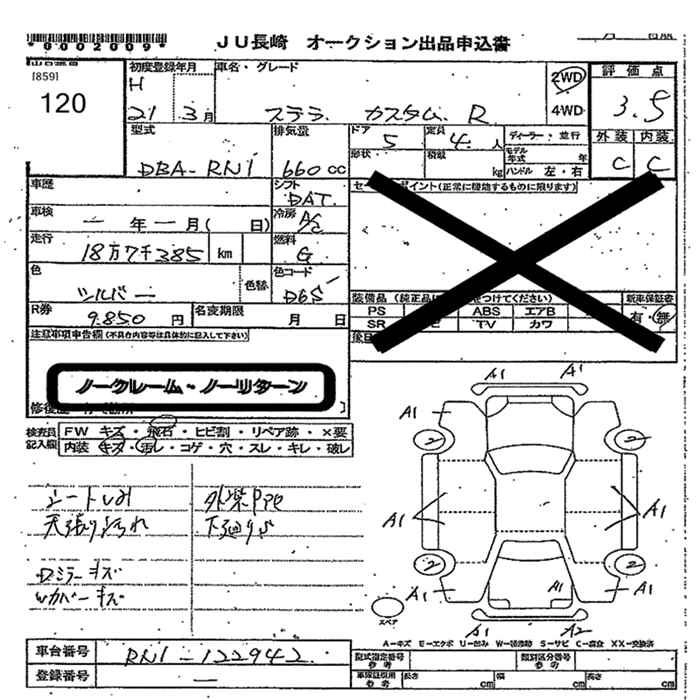 *0002009*
JU長崎 オークション出品申込書
[859]
120
初度登録年月
H
21 3月
車名・グレード
ステラ カスタム R
2WD
4WD
評価点
3.5
外装 内装
C C
型式
DBA-RN1
排気量
660cc
ドア
5
形状
定員
4人
積載
kg
ディーラー・並行
モデル年式 年
ハンドル 左・右
車歴
シフト
DAT
車検
一年一月( 日)
冷房
A/C
走行
18万7千385 km
燃料
G
色
シルバー
色替
色コード
D6S
R券
9.850円
名変期限
月 日
注意事項申告欄(不具合内容等は具体的に記入して下さい)
ノークレーム・ノーリターン
装備品
PS
SR
ABS
TV
エアB
カワ
新車保証書
有・無
検査員記入欄
FW キズ・飛石・ヒビ割・リペア跡・×要
内装 キズ・汚レ・コゲ・穴・スレ・キレ・破レ
シートしみ
天張り汚れ
Dミラーキズ
Wカバーキズ
下廻りS
A1 A1
A1 A1
2 2
A1 A1
2 2
A1 A1 A1
A1 A2
スペア
A-キズ E-エクボ U-凹み W-補修跡 S-サビ C-腐食 XX-交換済
車台番号
RN1-122942
登録番号
—
型式指定番号
参考
類別区分番号
参考
長さ cm
幅 cm
高さ cm